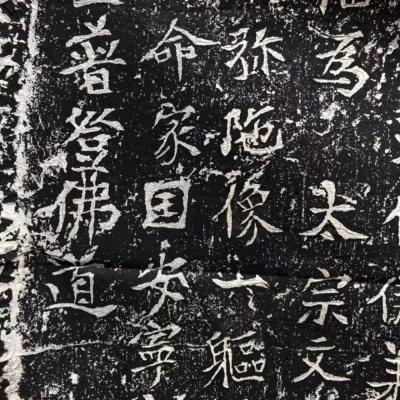 為 太宗文
弥陁像一軀
命家国安寧
普登佛道